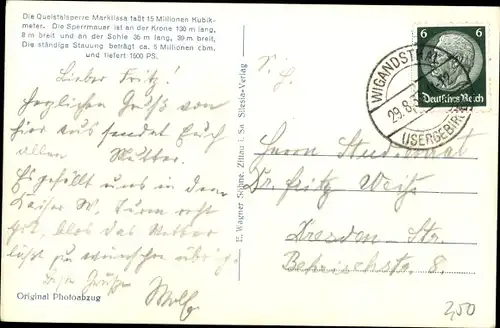 Die Queistalsperre Marklissa faßt 15 Millionen Kubik-
meter. Die Sperrmauer ist an der Krone 130 m lang,
8 m breit und an der Sohle 35 m lang, 39 m breit.
Die ständige Stauung beträgt ca. 5 Millionen cbm.
und liefert 1500 PS.
Lieber Fritz!
Herzlichen Gruß von
hier aus sendet Euch
allen Mutter.
Es gefällt uns in dem
Kaiser W. Turm recht
gut, blos das Wetter
läßt zu wünschen übrig.
Grüße
Wolf
Original Photoabzug
E. Wagner Söhne, Zittau i. Sa. Silesia-Verlag
6 6
Deutsches Reich
WIGANDSTHAL
29.8.
(ISERGEBIRGE)
Herrn Studienrat
Dr. Fritz Weise
Dresden-Str.
8.
2,50